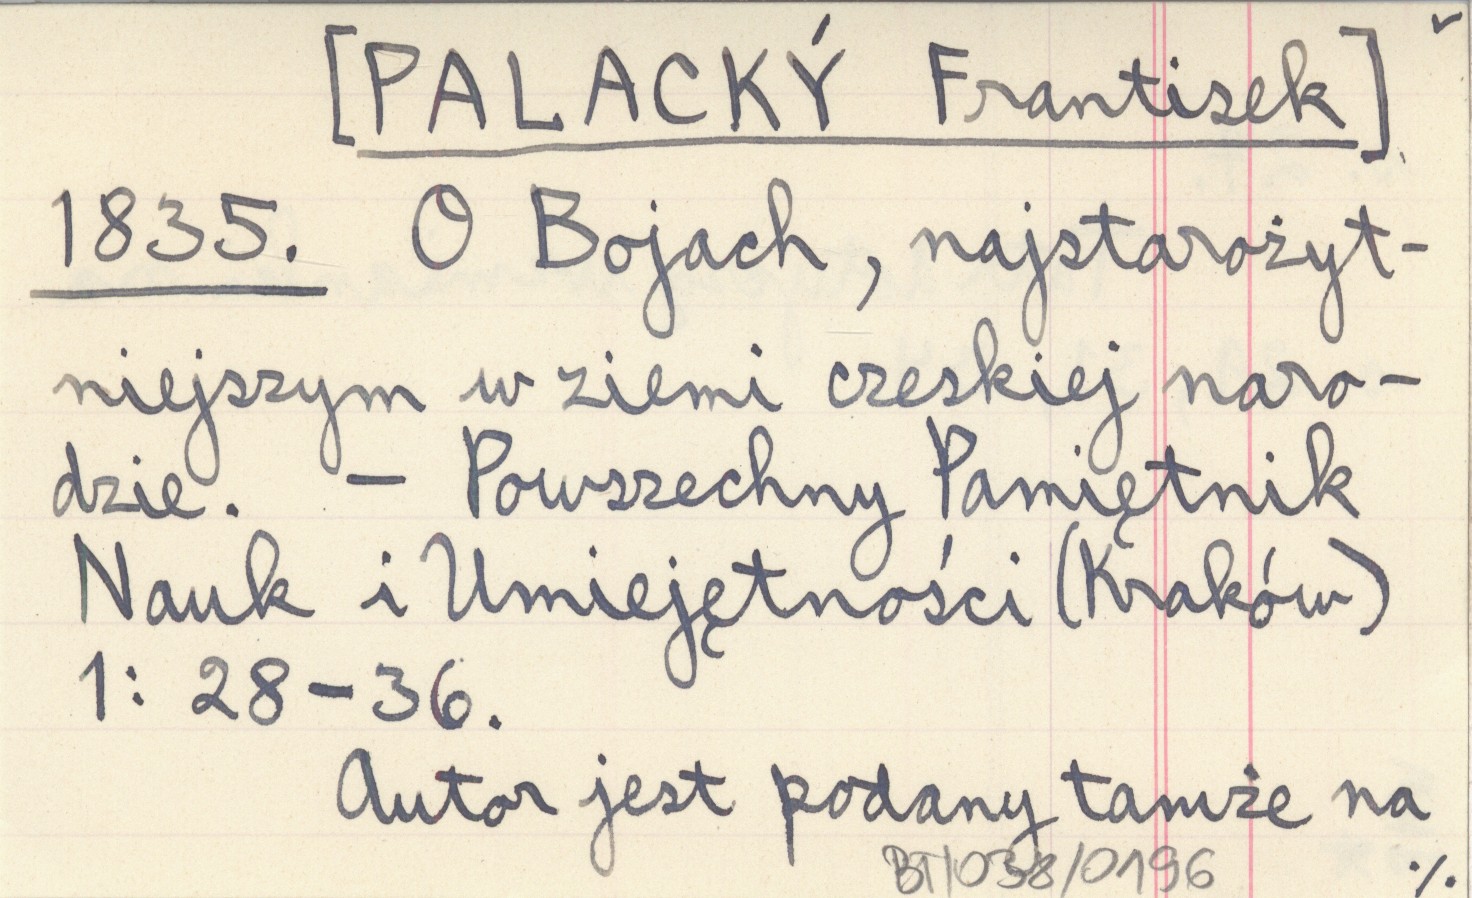 [PALACKÝ Frantisek]
1835. O Bojach, najstarożyt-
niejszym w ziemi czeskiej naro-
dzie. – Powszechny Pamiętnik
Nauk i Umiejętności (Kraków)
1: 28–36.
Autor jest podany tamże na
BT/038/0196 ./.